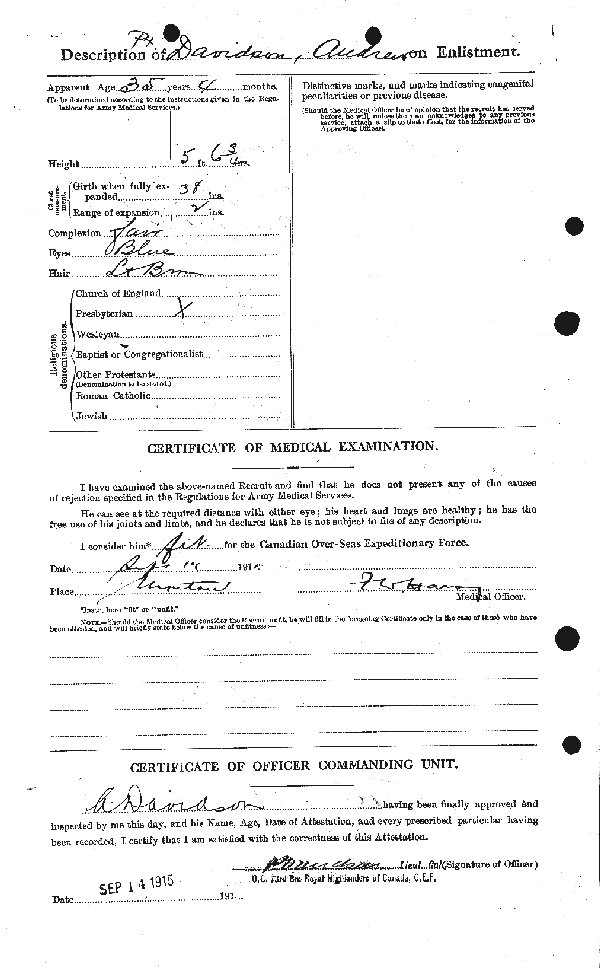 Description of Pte Davidson, Andrew on Enlistment.
Apparent Age 35 years 4 months.
(To be determined according to the instructions given in the Regulations for Army Medical Services.)
Height 5 ft. 6 3 ins.
Chest measurement.
Girth when fully expanded 38 ins.
Range of expansion 2 ins.
Complexion Fair
Eyes Blue
Hair Lt Brn
Religious denominations.
Church of England
Presbyterian X
Wesleyan
Baptist or Congregationalist
Other Protestants
(Denomination to be stated.)
Roman Catholic
Jewish
Distinctive marks, and marks indicating congenital
peculiarities or previous disease.
(Should the Medical Officer be of opinion that the recruit has served
before, he will, unless the man acknowledges to any previous
service, attach a slip to that effect, for the information of the
Approving Officer).
CERTIFICATE OF MEDICAL EXAMINATION.
I have examined the above-named Recruit and find that he does not present any of the causes
of rejection specified in the Regulations for Army Medical Services.
He can see at the required distance with either eye; his heart and lungs are healthy; he has the
free use of his joints and limbs, and he declares that he is not subject to fits of any description.
I consider him* fit for the Canadian Over-Seas Expeditionary Force.
Date Sep 191
Place
Medical Officer.
*Insert here "fit" or "unfit."
NOTE.—Should the Medical Officer consider the Recruit unfit, he will fill in the foregoing Certificate only in the case of those who have
been attested, and will briefly state below the cause of unfitness:—
CERTIFICATE OF OFFICER COMMANDING UNIT.
A Davidson having been finally approved and
inspected by me this day, and his Name, Age, Date of Attestation, and every prescribed particular having
been recorded, I certify that I am satisfied with the correctness of this Attestation.
Lieut. Col. (Signature of Officer)
O.C. 73rd Bn Royal Highlanders of Canada, C.E.F.
Date SEP 14 1915 191